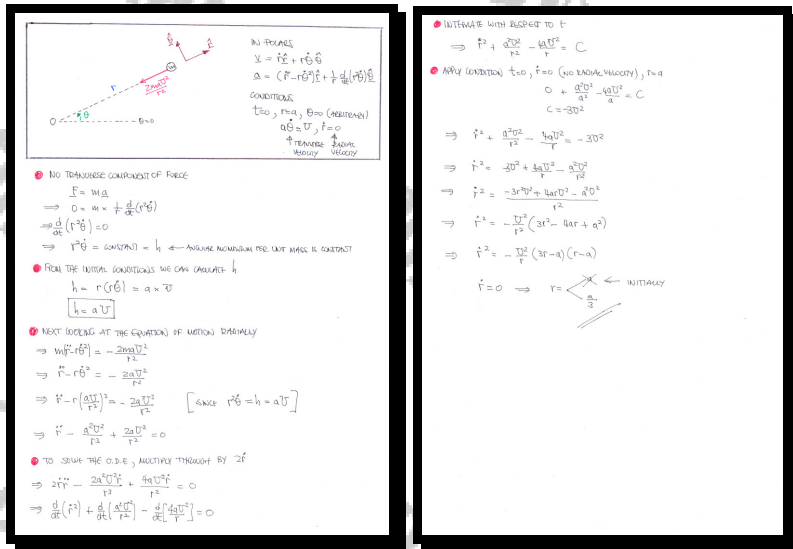 IN POLARS
v = ṙr̂ + rθ̇θ̂
a = (r̈ - rθ̇²)r̂ + 1/r d/dt(r²θ̇)θ̂
CONDITIONS
t=0, r=a, θ=0 (ARBITRARY)
aθ̇ = U, ṙ=0
↑ TRANSVERSE VELOCITY ↑ RADIAL VELOCITY
θ̂
r̂
m
r
2maU²/r²
O
θ
θ=0
NO TRANSVERSE COMPONENT OF FORCE
F = ma
⇒ 0 = m × 1/r d/dt(r²θ̇)
⇒ d/dt(r²θ̇) = 0
⇒ r²θ̇ = CONSTANT = h ← ANGULAR MOMENTUM PER UNIT MASS IS CONSTANT
FROM THE INITIAL CONDITIONS WE CAN CALCULATE h
h = r(rθ̇) = a × U
h = aU
NEXT LOOKING AT THE EQUATION OF MOTION RADIALLY
⇒ m(r̈ - rθ̇²) = - 2maU²/r²
⇒ r̈ - rθ̇² = - 2aU²/r²
⇒ r̈ - r(aU/r²)² = - 2aU²/r² [SINCE r²θ̇ = h = aU]
⇒ r̈ - a²U²/r³ + 2aU²/r² = 0
TO SOLVE THE O.D.E, MULTIPLY THROUGH BY 2ṙ
⇒ 2ṙr̈ - 2a²U²ṙ/r³ + 4aU²ṙ/r² = 0
⇒ d/dt(ṙ²) + d/dt(a²U²/r²) - d/dt[4aU²/r] = 0
INTEGRATE WITH RESPECT TO t
⇒ ṙ² + a²U²/r² - 4aU²/r = C
APPLY CONDITION t=0, ṙ=0 (NO RADIAL VELOCITY), r=a
0 + a²U²/a² - 4aU²/a = C
C = -3U²
⇒ ṙ² + a²U²/r² - 4aU²/r = -3U²
⇒ ṙ² = -3U² + 4aU²/r - a²U²/r²
⇒ ṙ² = (-3r²U² + 4arU² - a²U²)/r²
⇒ ṙ² = - U²/r² (3r² - 4ar + a²)
⇒ ṙ² = - U²/r² (3r-a)(r-a)
ṙ=0 ⇒ r= < a ← INITIALLY
a/3